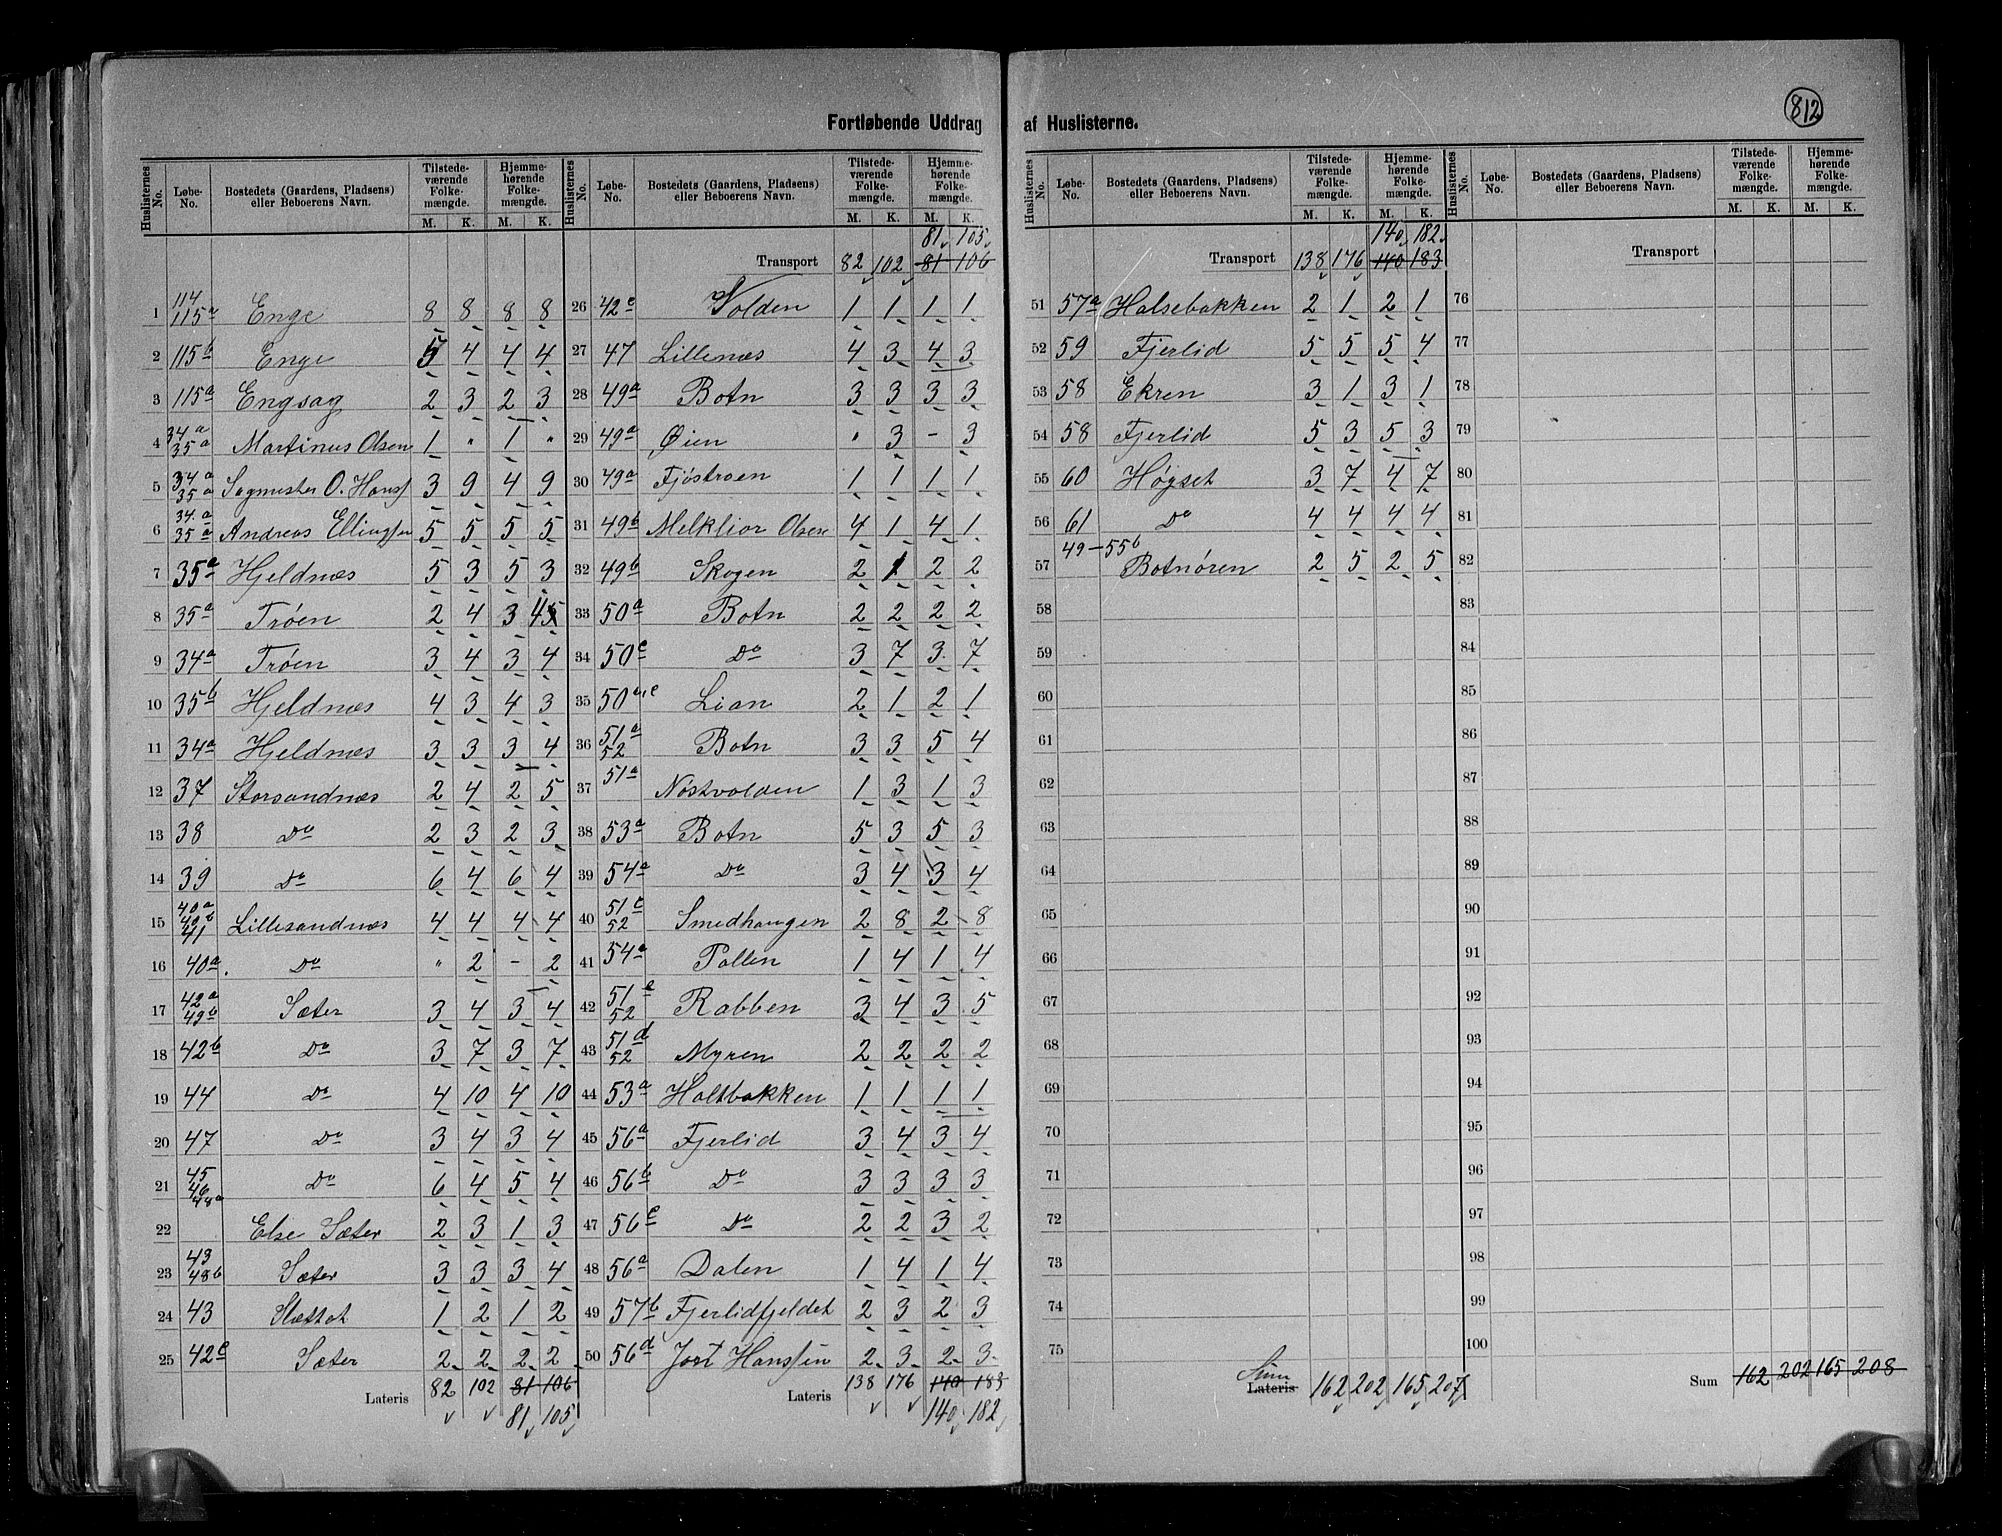 812
Fortløbende Uddrag af Huslisterne.
Huslisternes No. | Løbe-No. | Bostedets (Gaardens, Pladsens) eller Beboerens Navn. | Tilstedeværende Folkemængde. M. K. | Hjemmehørende Folkemængde. M. K.
1 | 114 115a | Enge | 8 | 8 | 8 | 8
2 | 115b | Enge | 5 | 4 | 4 | 4
3 | 115a | Engsag | 2 | 3 | 2 | 3
4 | 34a 35a | Martinus Olsen | 1 | " | 1 | "
5 | 34a 35a | Sagmester O. Hans | 3 | 9 | 4 | 9
6 | 34a 35a | Andreas Ellingsen | 5 | 5 | 5 | 5
7 | 35a | Hjeldnæs | 5 | 3 | 5 | 3
8 | 35a | Trøen | 2 | 4 | 3 | 4
9 | 34a | Trøen | 3 | 4 | 3 | 4
10 | 35b | Hjeldnæs | 4 | 3 | 4 | 3
11 | 34a | Hjeldnæs | 3 | 3 | 3 | 4
12 | 37 | Storsandnæs | 2 | 4 | 2 | 5
13 | 38 | Do | 2 | 3 | 2 | 3
14 | 39 | Do | 6 | 4 | 6 | 4
15 | 40a 40b 41 | Lillesandnæs | 4 | 4 | 4 | 4
16 | 40a | Do | " | 2 | - | 2
17 | 42a 49b | Sæter | 3 | 4 | 3 | 4
18 | 42b | Do | 3 | 7 | 3 | 7
19 | 44 | Do | 4 | 10 | 4 | 10
20 | 47 | Do | 3 | 4 | 3 | 4
21 | 45 46 48a | Do | 6 | 4 | 5 | 4
22 | Else Sæter | 2 | 3 | 1 | 3
23 | 43 48b | Sæter | 3 | 3 | 3 | 4
24 | 43 | Slættet | 1 | 2 | 1 | 2
25 | 42c | Sæter | 2 | 2 | 2 | 2
Lateris | 82 | 102 | 81 | 106
81 | 105
Huslisternes No. | Løbe-No. | Bostedets (Gaardens, Pladsens) eller Beboerens Navn. | Tilstedeværende Folkemængde. M. K. | Hjemmehørende Folkemængde. M. K.
81 | 105
Transport | 82 | 102 | 81 | 106
26 | 42c | Volden | 1 | 1 | 1 | 1
27 | 47 | Lillenæs | 4 | 3 | 4 | 3
28 | 49a | Botn | 3 | 3 | 3 | 3
29 | 49a | Øien | " | 3 | - | 3
30 | 49a | Fjøstraen | 1 | 1 | 1 | 1
31 | 49b | Melkior Olsen | 4 | 1 | 4 | 1
32 | 49b | Skogen | 2 | 1 | 2 | 2
33 | 50a | Botn | 2 | 2 | 2 | 2
34 | 50c | Do | 3 | 7 | 3 | 7
35 | 50 | Lian | 2 | 1 | 2 | 1
36 | 51a 52 | Botn | 3 | 3 | 5 | 4
37 | 51a | Nøstvolden | 1 | 3 | 1 | 3
38 | 53a | Botn | 5 | 3 | 5 | 3
39 | 54a | Do | 3 | 4 | 3 | 4
40 | 51c 52 | Smedhaugen | 2 | 8 | 2 | 8
41 | 54a | Pallen | 1 | 4 | 1 | 4
42 | 51e 52 | Rabben | 3 | 4 | 3 | 5
43 | 51d 52 | Myren | 2 | 2 | 2 | 2
44 | 53a | Holtbakken | 1 | 1 | 1 | 1
45 | 56a | Fjerlid | 3 | 4 | 3 | 4
46 | 56b | Do | 3 | 3 | 3 | 3
47 | 56c | Do | 2 | 2 | 3 | 2
48 | 56a | Dalen | 1 | 4 | 1 | 4
49 | 57b | Fjerlidfjeldet | 2 | 3 | 2 | 3
50 | 56d | Jost Hanssen | 2 | 3 | 2 | 3
Lateris | 138 | 176 | 140 | 183
140 | 182
Huslisternes No. | Løbe-No. | Bostedets (Gaardens, Pladsens) eller Beboerens Navn. | Tilstedeværende Folkemængde. M. K. | Hjemmehørende Folkemængde. M. K.
140 | 182
Transport | 138 | 176 | 140 | 183
51 | 57a | Halsebakken | 2 | 1 | 2 | 1
52 | 59 | Fjerlid | 5 | 5 | 5 | 4
53 | 58 | Ekren | 3 | 1 | 3 | 1
54 | 58 | Fjerlid | 5 | 3 | 5 | 3
55 | 60 | Høgset | 3 | 7 | 4 | 7
56 | 61 | Do | 4 | 4 | 4 | 4
57 | 49-55b | Botnøren | 2 | 5 | 2 | 5
58
59
60
61
62
63
64
65
66
67
68
69
70
71
72
73
74
75
Sum
Lateris | 162 | 202 | 165 | 207
Huslisternes No. | Løbe-No. | Bostedets (Gaardens, Pladsens) eller Beboerens Navn. | Tilstedeværende Folkemængde. M. K. | Hjemmehørende Folkemængde. M. K.
Transport
76
77
78
79
80
81
82
83
84
85
86
87
88
89
90
91
92
93
94
95
96
97
98
99
100
Sum | 162 | 202 | 165 | 208